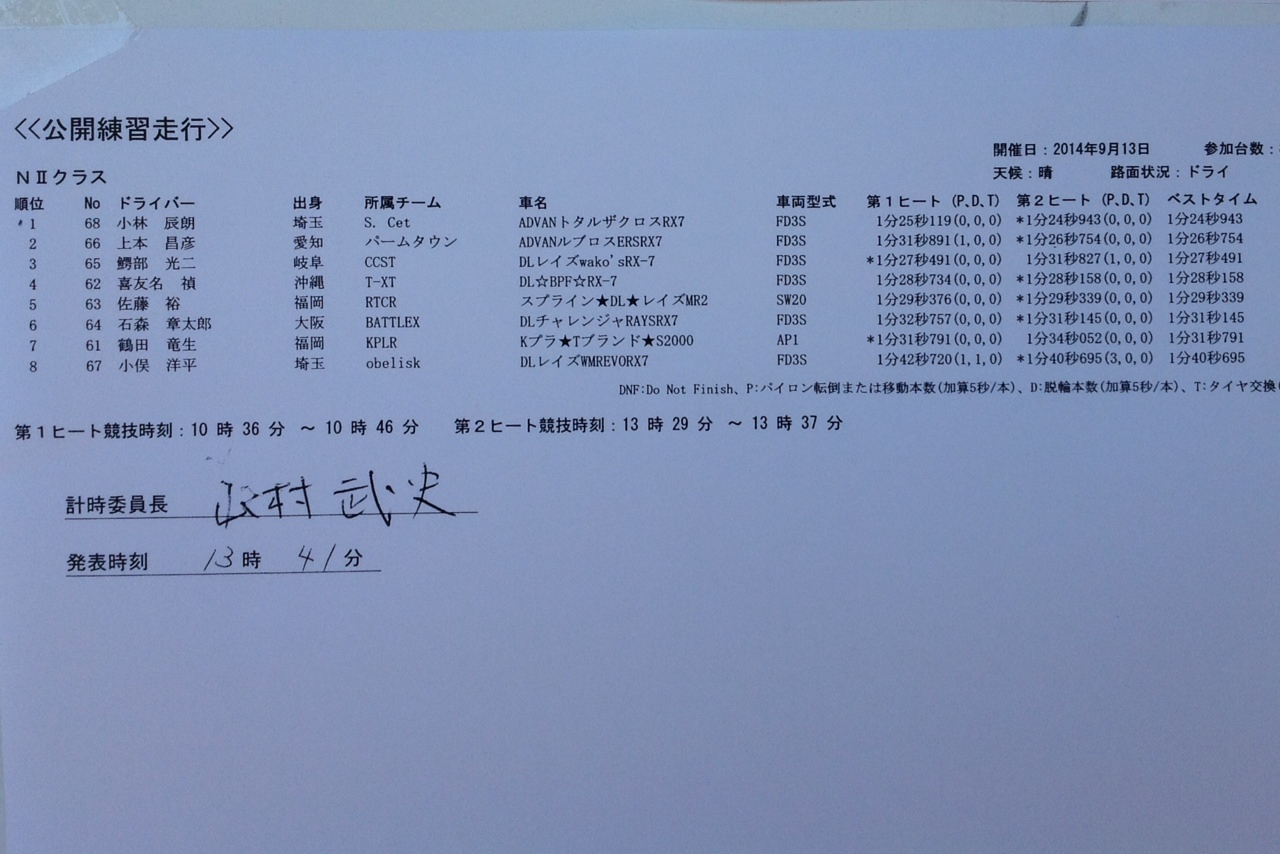 <<公開練習走行>>
開催日：2014年9月13日 参加台数：
NⅡクラス 天候：晴 路面状況：ドライ
順位 No ドライバー 出身 所属チーム 車名 車両型式 第1ヒート (P,D,T) 第2ヒート (P,D,T) ベストタイム
1 68 小林 辰朗 埼玉 S. Cet ADVANトタルザクロスRX7 FD3S 1分25秒119(0,0,0) *1分24秒943(0,0,0) 1分24秒943
2 66 上本 昌彦 愛知 パームタウン ADVANルブロスERSRX7 FD3S 1分31秒891(1,0,0) *1分26秒754(0,0,0) 1分26秒754
3 65 鰐部 光二 岐阜 CCST DLレイズwako'sRX-7 FD3S *1分27秒491(0,0,0) 1分31秒827(1,0,0) 1分27秒491
4 62 喜友名 禎 沖縄 T-XT DL☆BPF☆RX-7 FD3S 1分28秒734(0,0,0) *1分28秒158(0,0,0) 1分28秒158
5 63 佐藤 裕 福岡 RTCR スプライン★DL★レイズMR2 SW20 1分29秒376(0,0,0) *1分29秒339(0,0,0) 1分29秒339
6 64 石森 章太郎 大阪 BATTLEX DLチャレンジャRAYSRX7 FD3S 1分32秒757(0,0,0) *1分31秒145(0,0,0) 1分31秒145
7 61 鶴田 竜生 福岡 KPLR Kプラ★Tブランド★S2000 AP1 *1分31秒791(0,0,0) 1分34秒052(0,0,0) 1分31秒791
8 67 小俣 洋平 埼玉 obelisk DLレイズWMREVORX7 FD3S 1分42秒720(1,1,0) *1分40秒695(3,0,0) 1分40秒695
DNF:Do Not Finish、P:パイロン転倒または移動本数(加算5秒/本)、D:脱輪本数(加算5秒/本)、T:タイヤ交換(
第1ヒート競技時刻：10 時 36 分 ～ 10 時 46 分 第2ヒート競技時刻：13 時 29 分 ～ 13 時 37 分
計時委員長 村 武史
発表時刻 13 時 41 分